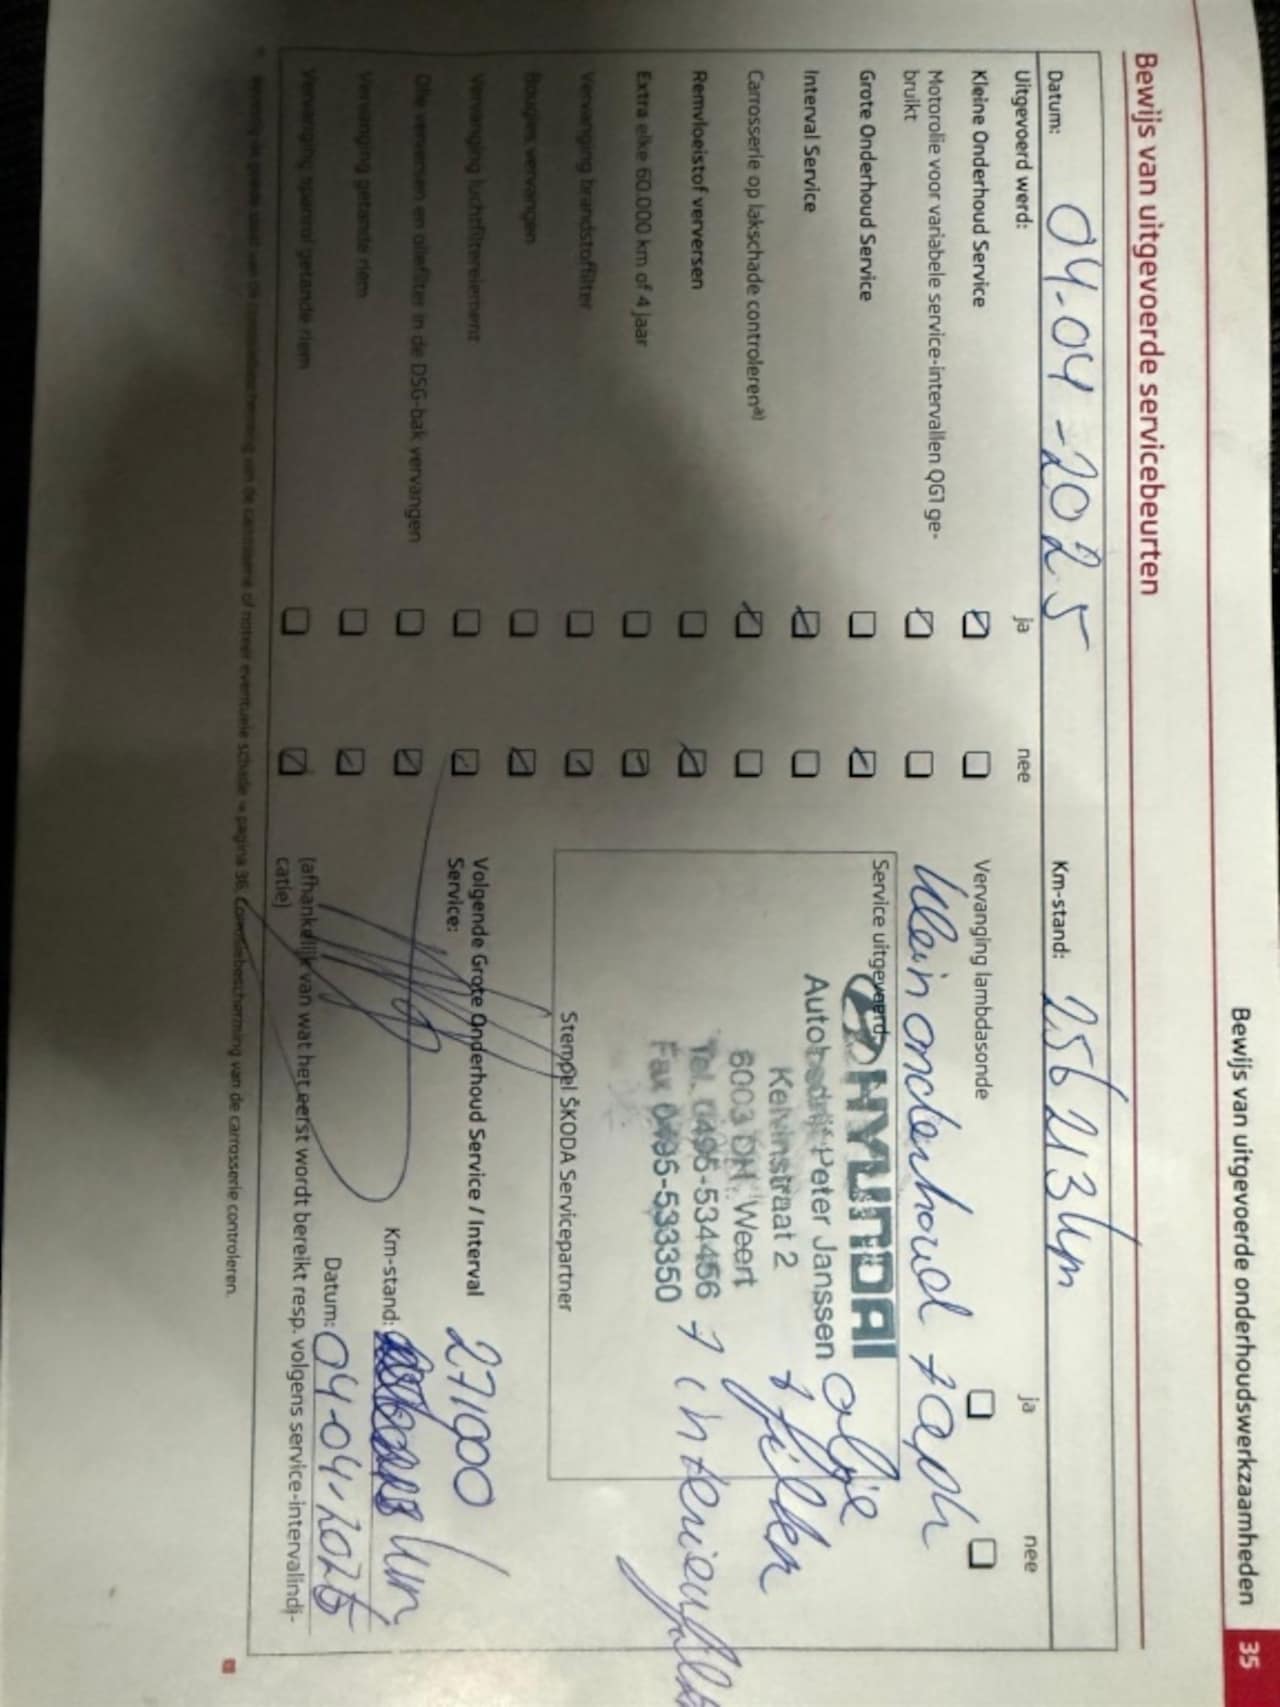 Bewijs van uitgevoerde onderhoudswerkzaamheden 35
Bewijs van uitgevoerde servicebeurten
Datum: 04-04-2025
Km-stand: 256213 km
Uitgevoerd werd:
ja
nee
ja
nee
Kleine Onderhoud Service
Vervanging lambdasonde
Motorolie voor variabele service-intervallen QG1 ge-
bruikt
Klein onderhoud +
Grote Onderhoud Service
Service uitgevoerd
HYUNDAI
Interval Service
Autobedrijf Peter Janssen
olie
Carrosserie op lakschade controlerena)
Kelvinstraat 2
+ filter
Remvloeistof verversen
6003 DH Weert
Tel. 0495-534456
+ interieurfilter
Extra elke 60.000 km of 4 jaar
Fax 0495-533350
Vervanging brandstoffilter
Stempel ŠKODA Servicepartner
Bougies vervangen
Vervanging luchtfilterelement
Volgende Grote Onderhoud Service / Interval
Service:
271000
Olie verversen en oliefilter in de DSG-bak vervangen
Km-stand: km
Vervanging getande riem
Datum: 04-04-2026
Vervanging spanrol getande riem
(afhankelijk van wat het eerst wordt bereikt resp. volgens service-intervalindi-
catie)
van de carrosserie of noteer eventuele schade ⇒ pagina 36, Corrosiebescherming van de carrosserie controleren.